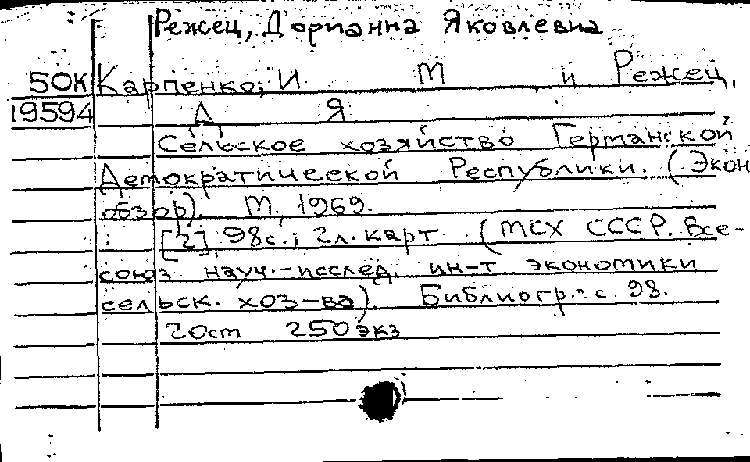 Режец, Дорианна Яковлевна
50К Карпенко, И. М и Режец,
19594 Д Я
Сельское хозяйство Германской
Демократической Республики. (Экон
обзор). М, 1969.
[2], 98с.; 2л. карт. (МСХ СССР. Все-
союз науч.-исслед. ин-т экономики
сельск. хоз-ва). Библиогр.: с. 98.
20 см 250 экз